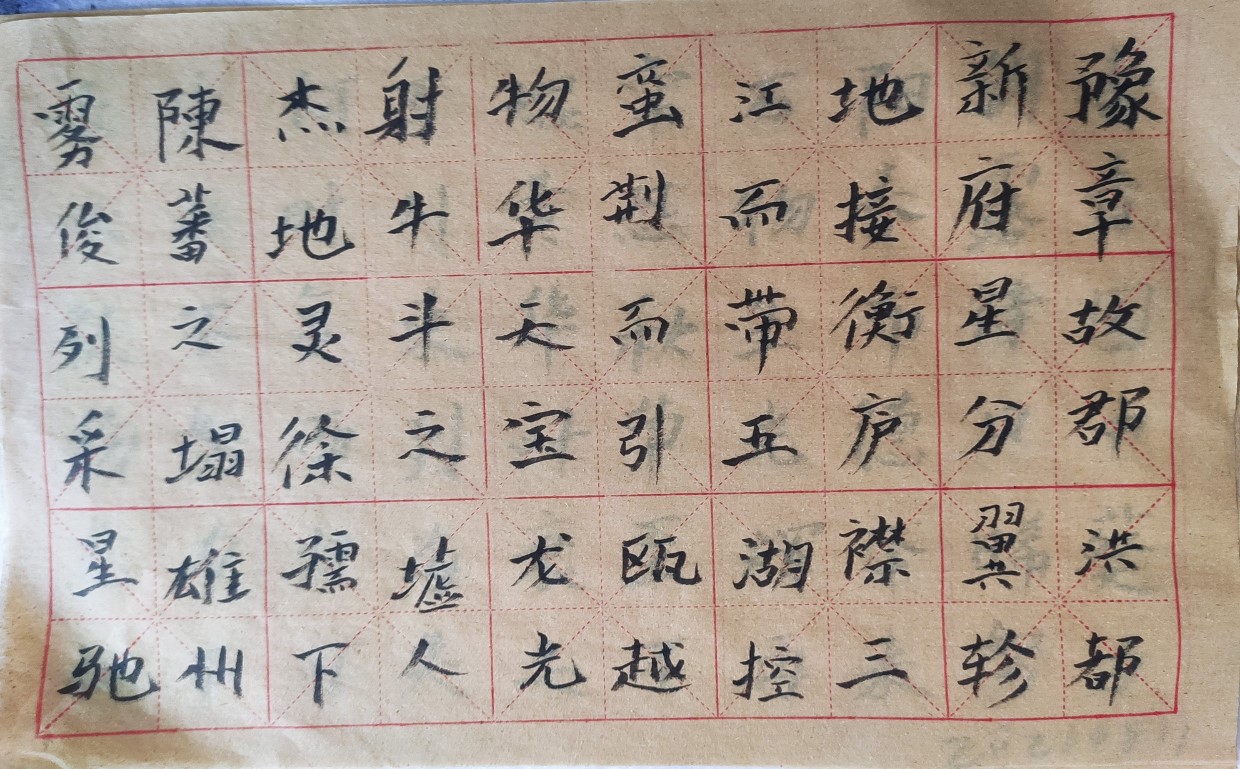 豫章故郡洪都
新府星分翼轸
地接衡庐襟三
江而带五湖控
蛮荆而引瓯越
物华天宝龙光
射牛斗之墟人
杰地灵徐孺下
陳蕃之塌雄州
雾俊列采星驰